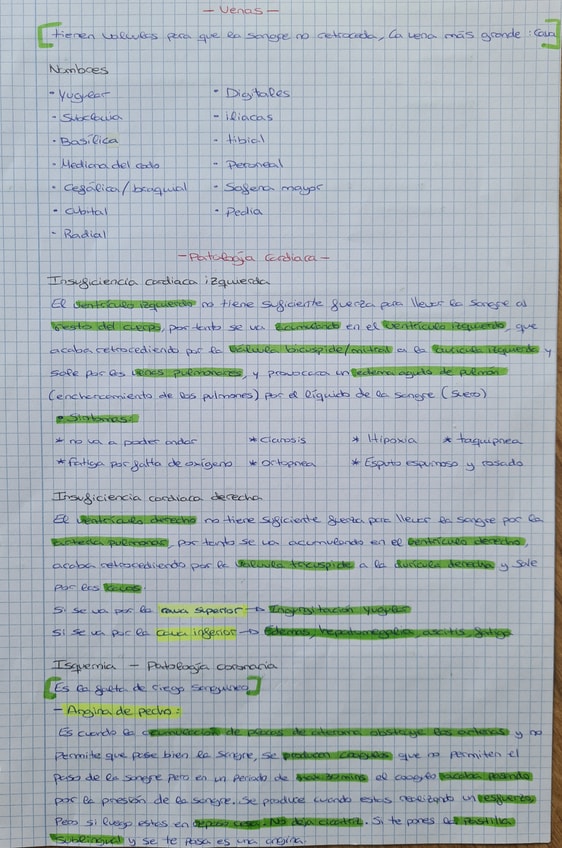 - Venas -
[tienen valvulas para que la sangre no retroceda, la vena más grande : cava]
Nombres
· Yugular
· Digitales
· Subclavia
· iliacas
· Basílica
· tibial
· Mediana del codo
· Peroneal
· Cefálica/braquial
· Safena mayor
· cubital
· Pedia
· Radial
- Patología cardiaca -
Insuficiencia cardiaca izquierda
El ventrículo izquierdo no tiene suficiente fuerza para llevar la sangre al
resto del cuerpo, por tanto se va acumulando en el ventrículo izquierdo, que
acaba retrocediendo por la válvula bicuspide/mitral a la aurícula izquierda y
sale por las venas pulmonares, y provocara un edema agudo de pulmón
(encharcamiento de los pulmones) por el líquido de la sangre (suero)
• Síntomas:
* no va a poder andar * cianosis * Hipoxia * taquipnea
* fatiga por falta de oxígeno * ortopnea * Esputo espumoso y rosado
Insuficiencia cardiaca derecha
El ventrículo derecho no tiene suficiente fuerza para llevar la sangre por la
arteria pulmonar, por tanto se va acumulando en el ventrículo derecho,
acaba retrocediendo por la valvula tricuspide a la aurícula derecha y sale
por las cavas.
Si se va por la cava superior → Ingurgitación yugular
Si se va por la cava inferior → Edemas, hepatomegalia, ascitis, fatiga
Isquemia - Patología coronaria
[Es la falta de riego sanguineo]
- Angina de pecho:
Es cuando la acumulación de placas de ateroma obstruye las arterias y no
permite que pase bien la sangre, se producen coagulos que no permiten el
paso de la sangre pero en un periodo de max 30 mins el coagulo acaba pasando
por la presión de la sangre. Se produce cuando estas realizando un esfuerzo
Pero si luego estas en reposo cesa. No deja cicatriz. Si te pones la pastilla
sublingual y se te pasa es una angina.